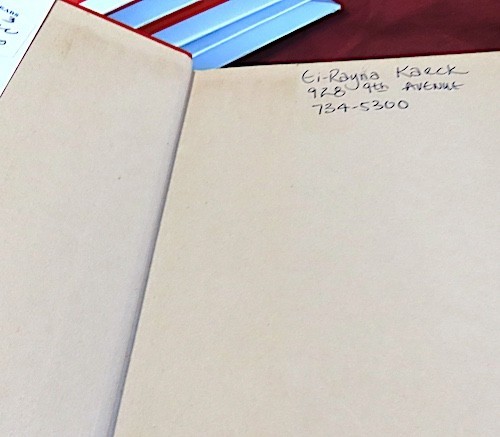 Ei-Rayna Kaeck
928 9th AVENUE
734-5300